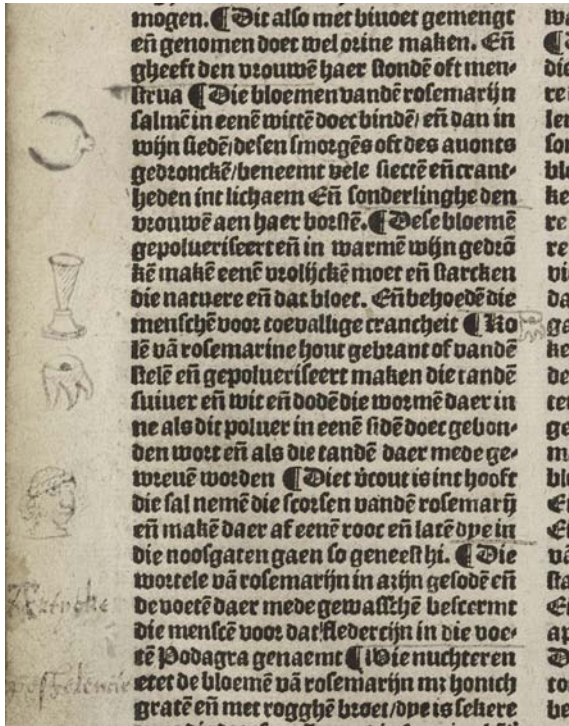 mogen. ¶ Dit also met bivoet gemengt
eñ genomen doet wel orine maken. Eñ
gheeft den vrouwē haer stondē oft men-
strua ¶ Die bloemen vandē rosemarijn
salmē in eenē wittē doec bindē/ eñ dan in
wijn siedē/ desen smorgēs oft des avonts
gedronckē/ beneemt vele siectē eñ crant-
heden int lichaem Eñ sonderlinghe den
vrouwē aen haer borstē. ¶ Dese bloemē
gepolueriseert eñ in warmē wijn gedrō
kē makē eenē vrolijckē moet eñ starcken
die natuere eñ dat bloet. Eñ behoedē die
menschē voor toevallige crancheit ¶ Ko
lē vā rosemarine hout gebrant of vandē
stelē eñ gepolueriseert maken die tandē
suiuer eñ wit eñ dodē die wormē daer in
ne als dit poluer in eenē sidē doec gebon-
den wort eñ als die tandē daer mede ge-
wreuē worden ¶ Diet vcout is int hooft
die sal nemē die scorsen vandē rosemarij
eñ makē daer af eenē rooc eñ latē dye in
die noosgaten gaen so geneest hi. ¶ Die
wortele vā rosemarijn in azijn gesodē eñ
de voetē daer mede gewasschē bescermt
die menscē voor dat fledercijn in die voe-
tē Podagra genaemt ¶ Wie nuchteren
etet de bloemē vā rosemarijn mz honich
gratē eñ met rogghē broet/ dye is sekere